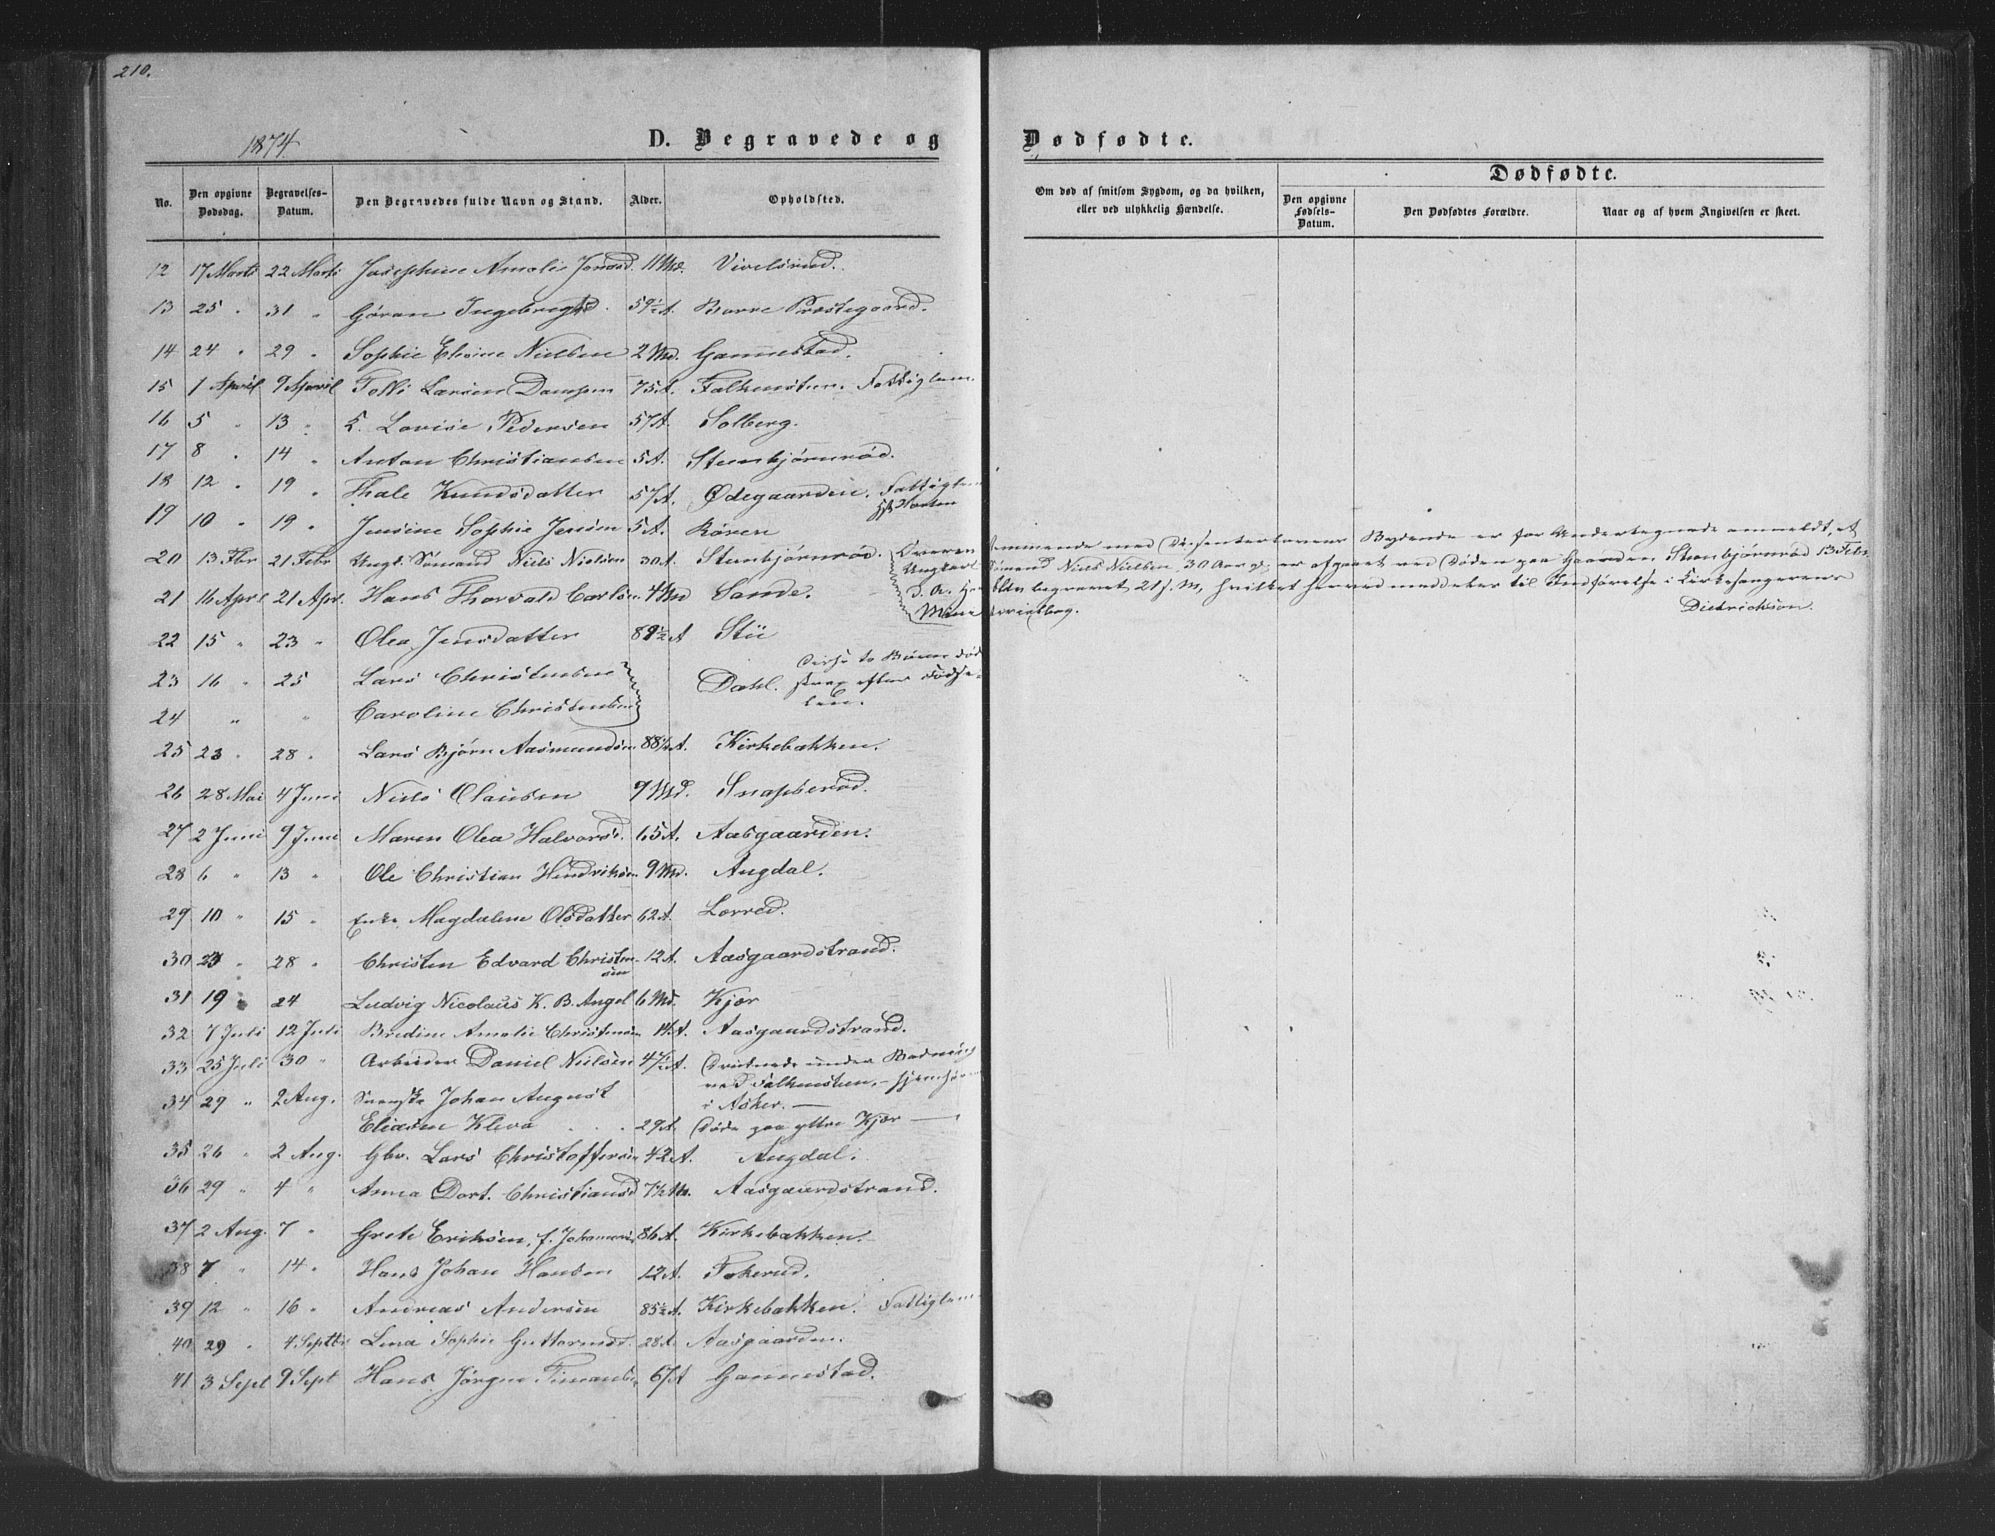 210.
1874
D. Begravede og Dødfødte.
No. Den opgivne Dødsdag. Begravelses-Datum. Den Begravedes fulde Navn og Stand. Alder. Opholdsted.
Om død af smitsom Sygdom, og da hvilken, eller ved ulykkelig Hændelse.
Dødfødte.
Den opgivne Fødsels-Datum. Den Dødfødtes Forældre. Naar og af hvem Angivelsen er skeet.
12 17 Marts 22 Marts Josephine Amalie Jonasd. 11 Md.
13 25 " 31 " Gøran Ingebrigtsd. 59½ A. Borre Præstegaard.
14 24 " 29 " Sophie Elisine Nielsen 2 Md. Gannestad.
15 1 April 9 April Larsen 75 A. Falkensten. Fattiglem.
16 5 " 13 " L. Lovise Pedersen 57 A. Solberg.
17 8 " 14 " Anton Christiansen 5 A. Steenbjørnrød.
18 12 " 19 " Thale Knudsdatter 57 A. Ødegaarden. Fattiglem
Horten
19 10 " 19 " Jensine Sophie Jensen 5 A. Røren
20 13 Fbr 21 Febr Ungk. Sømand Niels Nielsen 30 A. Steenbjørnrød.
Overensstemmende med Dissenterlovens Bydende er for Undertegnede anmeldt, at
Ungkarl Sømand Niels Nielsen, 30 Aar gl; er afgaaet ved Døden paa Gaarden Stenbjørnrød 13 Febr.
d. A. begravet 21 s. M, hvilket herved meddeles til Indførelse i Kirkesangerens
Ministerialbog. Dietrichson.
21 16 April 21 Apr. Hans Thorvald Carlsen 4 Md Sande.
22 15 " 23 " Olea Jensdatter 89½ A
23 16 " 25 Lars Christensen Dahl.
Disse to Børn død
strax efter Fødse-
len.
24 " " Caroline Christensen
25 23 " 28 " Lars Bjørn Aasmundsen 88½ A. Kirkebakken.
26 28 Mai 4 Juni Niels Olausen 9 Md. Snapperød.
27 2 Juni 9 Juni Maren Olea Halvorsd. 65 A. Aasgaarden.
28 6 " 13 " Ole Christian Hendriksen 9 Md. Augdal.
29 10 " 15 " Enke Magdalene Olsdatter 62 A.
30 23 " 28 " Christen Edvard Christen- 12 A. Aasgaardstrand.
sen
31 19 " 24 Ludvig Nicolaus K. B. Angel 6 Md. Kjær
32 7 Juli 12 Juli Bredine Amalie Christensen A. Aasgaardstrand.
33 25 Juli 30 " Arbeider Daniel Nielsen A. Druknede under Badning
ved Falkensten, - hjemhør.
i Asker. —
34 29 " 2 Aug. Svenske Johan August
Eliasen Kleva . . . 29 A. Døde paa yttre Kjær —
35 26 " 2 Aug. Gbr. Lars Christoffersen 42 A. Augdal.
36 29 " 4 " Anna Dort. Christiansd 7½ M. Aasgaardstrand.
37 2 Aug. 7 " Grete Eriksen, f. Johannesd 86 A. Kirkebakken.
38 7 " 14 " Hans Johan Hansen 12 A. Fokerud.
39 12 " 16 " Andreas Andersen 85½ A. Kirkebakken. Fattiglem
40 29 " 4 Septbr Lina Sophie Guttormsd. 28 A. Aasgaarden.
41 3 Sept 9 Sept Hans Jørgen 67 A Gannestad.